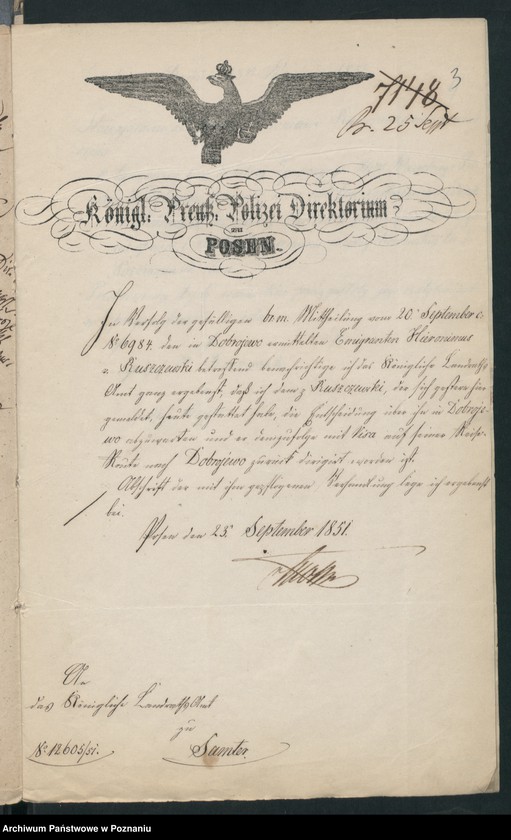 3
7118
Pr. 25 Sept
Königl. Preuß. Polizei Direktorium
zu
POSEN.
In Verfolg der gefälligen br. m. Mittheilung vom 20 September c.
N° 6984. den in Dobrojewo ermittelten Emigranten Hieronimus
v. Ruszczewski betreffend benachrichtige ich das Königliche Landraths
Amt ganz ergebenst, daß ich dem p Ruszczewski, der sich gestern hier
gemeldet, heute gestattet habe, die Entscheidung über ihn in Dobroje-
wo abzuwarten und er demzufolge mit Visa auf seiner Reise-
Route nach Dobrojewo zurück dirigirt worden ist.
Abschrift der mit ihm gepflogenen Verhandlung lege ich ergebenst
bei.
Posen den 25. September 1851.
An
das Königliche Landraths Amt
zu
Samter.
N° 12605/51.
Archiwum Państwowe w Poznaniu